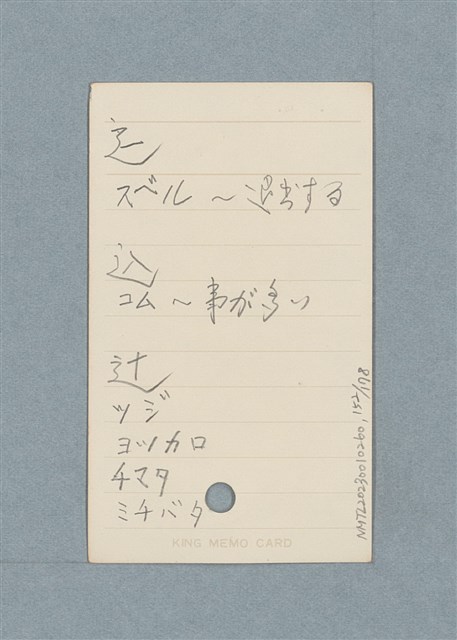 辷
スベル ～退出する
込
コム ～事が多い
辻
ツジ
ヨツカロ
チマタ
ミチバタ
KING MEMO CARD
NMTL20230010260, 152/178